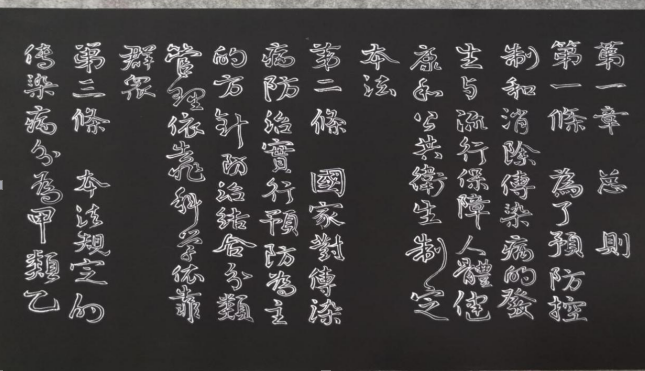 第一章 总則
第一條 為了預防控
制和消除傳染病的發
生与流行保障人體健
康和公共衛生制定
本法
第二條 國家對傳染
病防治實行預防為主
的方針防治結合分類
管理依靠科学依靠
群衆
第三條 本法規定的
傳染病分為甲類乙